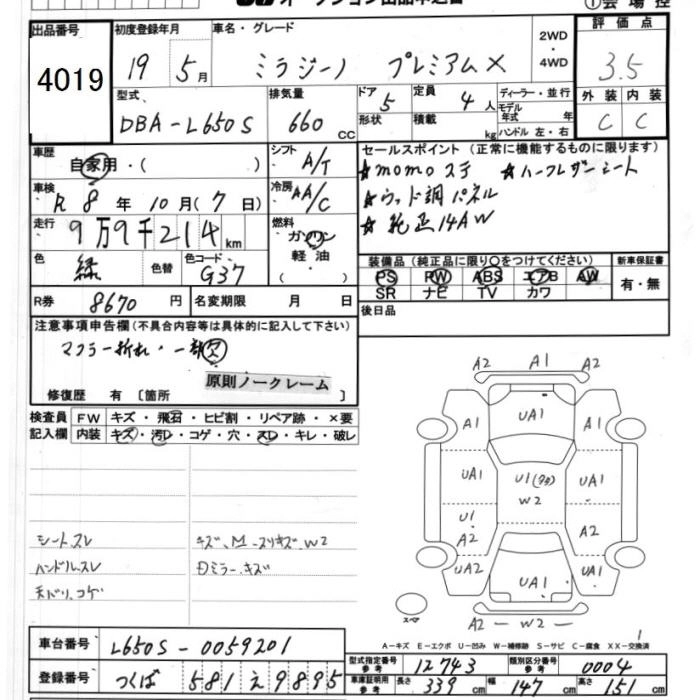 出品番号 初度登録年月 車名・グレード 2WD・4WD 評価点
4019 19 5月 ミラジーノ プレミアムX 3.5
型式 排気量 ドア 定員 ディーラー・並行 外装 内装
DBA-L650S 660 cc 5 4人 モデル年式 年式 C C
形状 積載 kg ハンドル 左・右
車歴 自家用・( ) シフト A/T セールスポイント (正常に機能するものに限ります)
☆momoステ ☆ハーフレザーシート
車検 R8年10月(7日) 冷房 AA/C ☆ウッド調パネル
走行 9万9千214km 燃料 ガソリン・軽油・( ) ☆純正14AW
色 緑 色替 色コード G37 装備品(純正品に限り○をつけてください) 新車保証書
PS PW ABS エアB AW 有・無
SR ナビ TV カワ
R券 8670円 名変期限 月 日 後日品
注意事項申告欄(不具合内容等は具体的に記入して下さい)
マフラー折れ・一部欠
原則ノークレーム
修復歴 有 〔箇所 〕
検査員 FW キズ・飛石・ヒビ割・リペア跡・×要
記入欄 内装 キズ・汚レ・コゲ・穴・スレ・キレ・破レ
A2 A1 A2
A1 UA1 A1
UA1 U1 W2 UA1
U1 A2 A2
UA2 UA1 UA1
スペア A2 -W2- A2
シートスレ
ハンドルスレ
天バリ、コゲ
A-キズ E-エクボ U-凹み W-補修跡 S-サビ C-腐食 XX-交換済
1
車台番号 L650S-0059201
型式指定番号 参考 12743 類別区分番号 参考 0004
登録番号 つくば 581 え 9895
車庫証明用 参考 長さ 339cm 幅 147cm 高さ 151cm